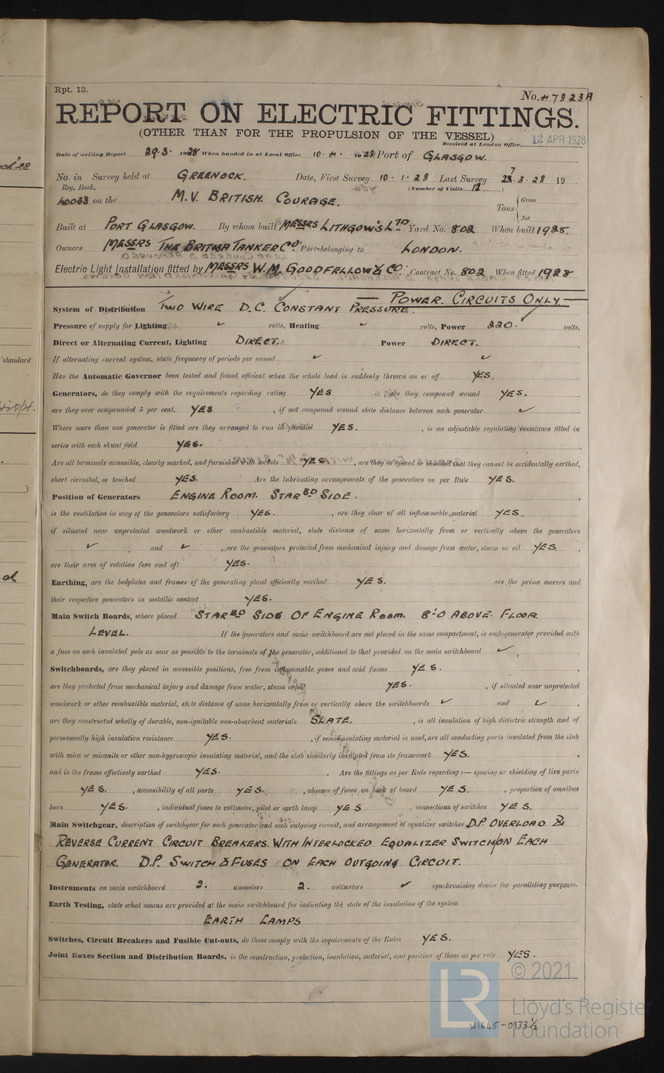 Rpt. 13.
No. 47823A
REPORT ON ELECTRIC FITTINGS.
(OTHER THAN FOR THE PROPULSION OF THE VESSEL)
Received at London Office 12 APR 1928
Date of writing Report 29.3. 1928 When handed in at Local Office 10.4. 1928 Port of GLASGOW.
No. in Survey held at GREENOCK. Date, First Survey 10.1.28 Last Survey 27.3.28 19
Reg. Book. (Number of Visits 12)
40083 on the M.V. BRITISH COURAGE. Tons Gross
Net
Built at PORT GLASGOW. By whom built MESSRS LITHGOWS LTD Yard No. 802 When built 1928.
Owners MESSRS THE BRITISH TANKER CO. Port belonging to LONDON.
Electric Light Installation fitted by MESSRS W.M. GOODFELLOW & CO. Contract No. 802 When fitted 1928
POWER CIRCUITS ONLY
System of Distribution TWO WIRE D.C. CONSTANT PRESSURE.
Pressure of supply for Lighting ✓ volts, Heating ✓ volts, Power 220. volts.
Direct or Alternating Current, Lighting DIRECT. Power DIRECT.
If alternating current system, state frequency of periods per second ✓ ✓
Has the Automatic Governor been tested and found efficient when the whole load is suddenly thrown on or off YES.
Generators, do they comply with the requirements regarding rating YES are they compound wound YES.
are they over compounded 5 per cent. YES, if not compound wound state distance between each generator ✓
Where more than one generator is fitted are they arranged to run in parallel YES., is an adjustable regulating resistance fitted in
series with each shunt field YES.
Are all terminals accessible, clearly marked, and furnished with sockets YES, are they so spaced or shielded that they cannot be accidentally earthed,
short circuited, or touched YES. Are the lubricating arrangements of the generators as per Rule YES.
Position of Generators ENGINE ROOM. STARBD SIDE.
is the ventilation in way of the generators satisfactory YES., are they clear of all inflammable material YES.
if situated near unprotected woodwork or other combustible material, state distance of same horizontally from or vertically above the generators
✓ and ✓, are the generators protected from mechanical injury and damage from water, steam or oil YES,
are their axes of rotation fore and aft YES.
Earthing, are the bedplates and frames of the generating plant efficiently earthed YES. are the prime movers and
their respective generators in metallic contact YES.
Main Switch Boards, where placed STARBD SIDE OF ENGINE ROOM. 8'.0 ABOVE FLOOR
LEVEL. If the generators and main switchboard are not placed in the same compartment, is each generator provided with
a fuse on each insulated pole as near as possible to the terminals of the generator, additional to that provided on the main switchboard ✓
Switchboards, are they placed in accessible positions, free from inflammable gases and acid fumes YES.
are they protected from mechanical injury and damage from water, steam or oil YES., if situated near unprotected
woodwork or other combustible material, state distance of same horizontally from or vertically above the switchboards ✓ and ✓
are they constructed wholly of durable, non-ignitable non-absorbent materials SLATE., is all insulation of high dielectric strength and of
permanently high insulation resistance YES., if semi-insulating material is used, are all conducting parts insulated from the slab
with mica or micanite or other non-hygroscopic insulating material, and the slab similarly insulated from its framework YES.
and is the frame effectively earthed YES. Are the fittings as per Rule regarding:— spacing or shielding of live parts
YES., accessibility of all parts YES., absence of fuses on back of board YES., proportion of omnibus
bars YES., individual fuses to voltmeter, pilot or earth lamp YES, connections of switches YES.
Main Switchgear, description of switchgear for each generator and each outgoing circuit, and arrangement of equalizer switches D.P. OVERLOAD &
REVERSE CURRENT CIRCUIT BREAKERS. WITH INTERLOCKED EQUALIZER SWITCH ON EACH
GENERATOR. D.P. SWITCH & FUSES ON EACH OUTGOING CIRCUIT.
Instruments on main switchboard 2. ammeters 2. voltmeters ✓ synchronising device for paralleling purposes.
Earth Testing, state what means are provided at the main switchboard for indicating the state of the insulation of the system
EARTH LAMPS
Switches, Circuit Breakers and Fusible Cut-outs, do these comply with the requirements of the Rules YES.
Joint Boxes Section and Distribution Boards, is the construction, protection, insulation, material, and position of these as per rule YES.
© 2021
LR
Lloyd's Register
Foundation
W1665-0133½